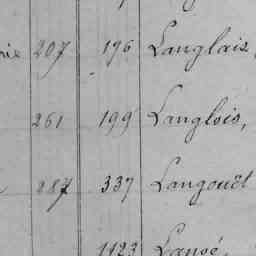 207 196 Langlais,
261 199 Langlois,
287 337 Langouët
1123